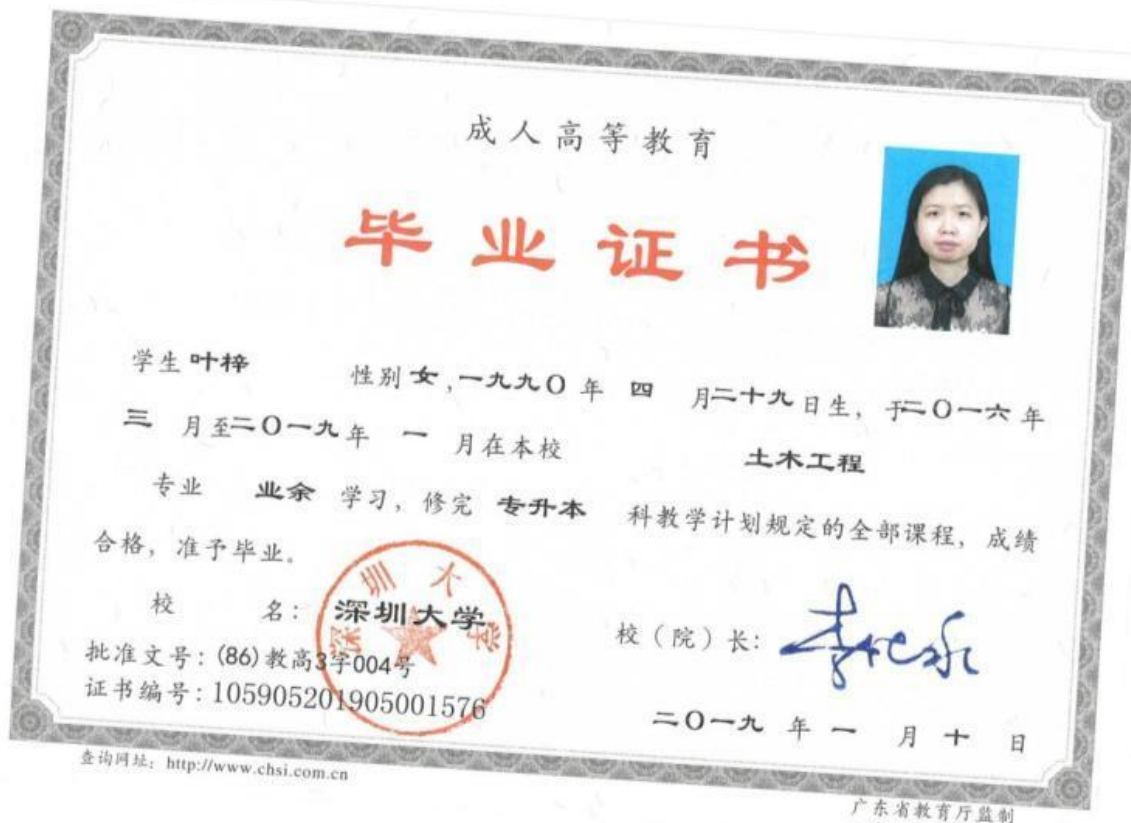 成人高等教育
毕业证书
学生 叶梓 性别 女,一九九〇 年 四 月二十九日生，于二〇一六 年
三 月至二〇一九年 一 月在本校 土木工程
专业 业余 学习，修完 专升本 科教学计划规定的全部课程，成绩
合格，准予毕业。
深圳大学
校 名：深圳大学
校（院）长：李清泉
批准文号：(86)教高3字004号
证书编号：105905201905001576
二〇一九 年 一 月 十 日
查询网址：http://www.chsi.com.cn
广东省教育厅监制